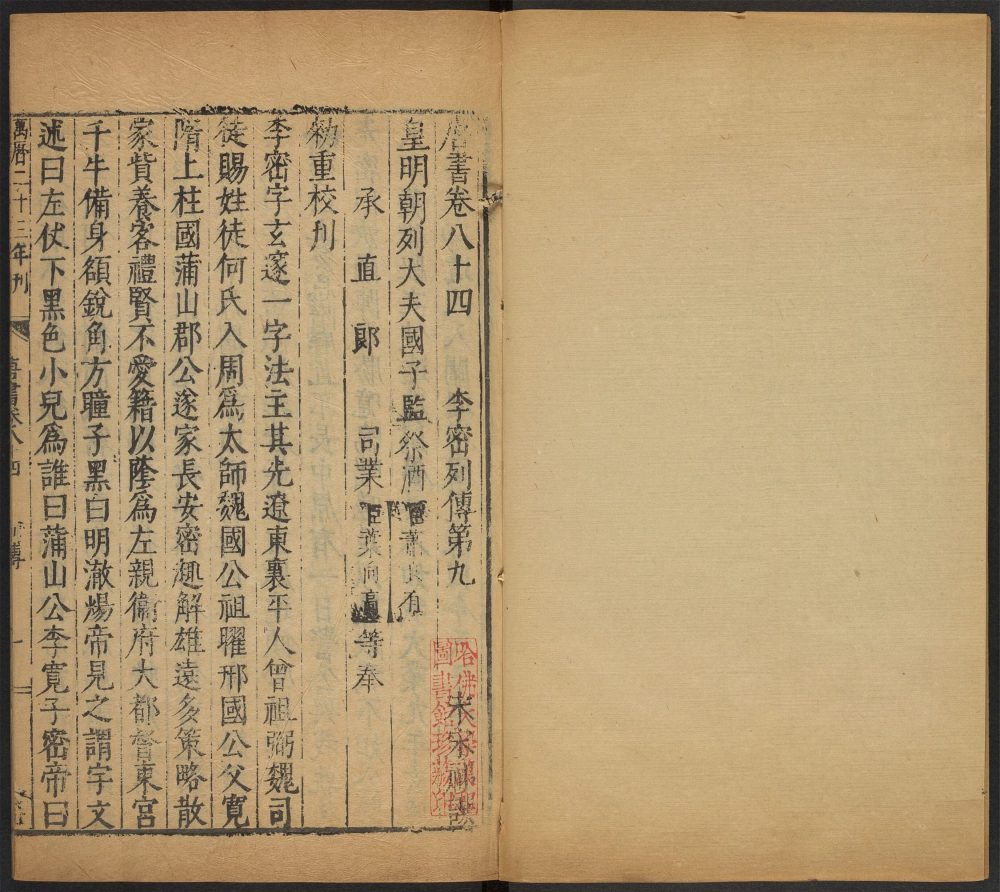 唐書卷八十四 李密列傳第九 宋宋祁撰
皇明朝列大夫國子監祭酒臣蕭良有
承直郎司業臣葉向高等奉
勑重校刋
李密字玄邃一字法主其先遼東襄平人曾祖弼魏司
徒賜姓徒何氏入周爲太師魏國公祖曜邢國公父寬
隋上柱國蒲山郡公遂家長安密趫解雄遠多策略散
家貲養客禮賢不愛籍以蔭爲左親衞府大都督東宮
千牛備身額銳角方瞳子黑白明澈煬帝見之謂宇文
述曰左仗下黑色小兒爲誰曰蒲山公李寬子密帝曰
萬曆二十三年刋 唐書卷八十四 列傳 一
哈佛大學
圖書館珍藏印